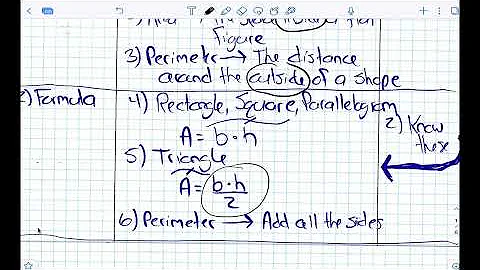 Figure
3) Perimeter → The distance
around the outside of a shape
2) Formula
4) Rectangle, Square, Parallelogram
A = b·h
2) Know
these
5) Triangle
A = b·h
2
6) Perimeter → Add all the sides